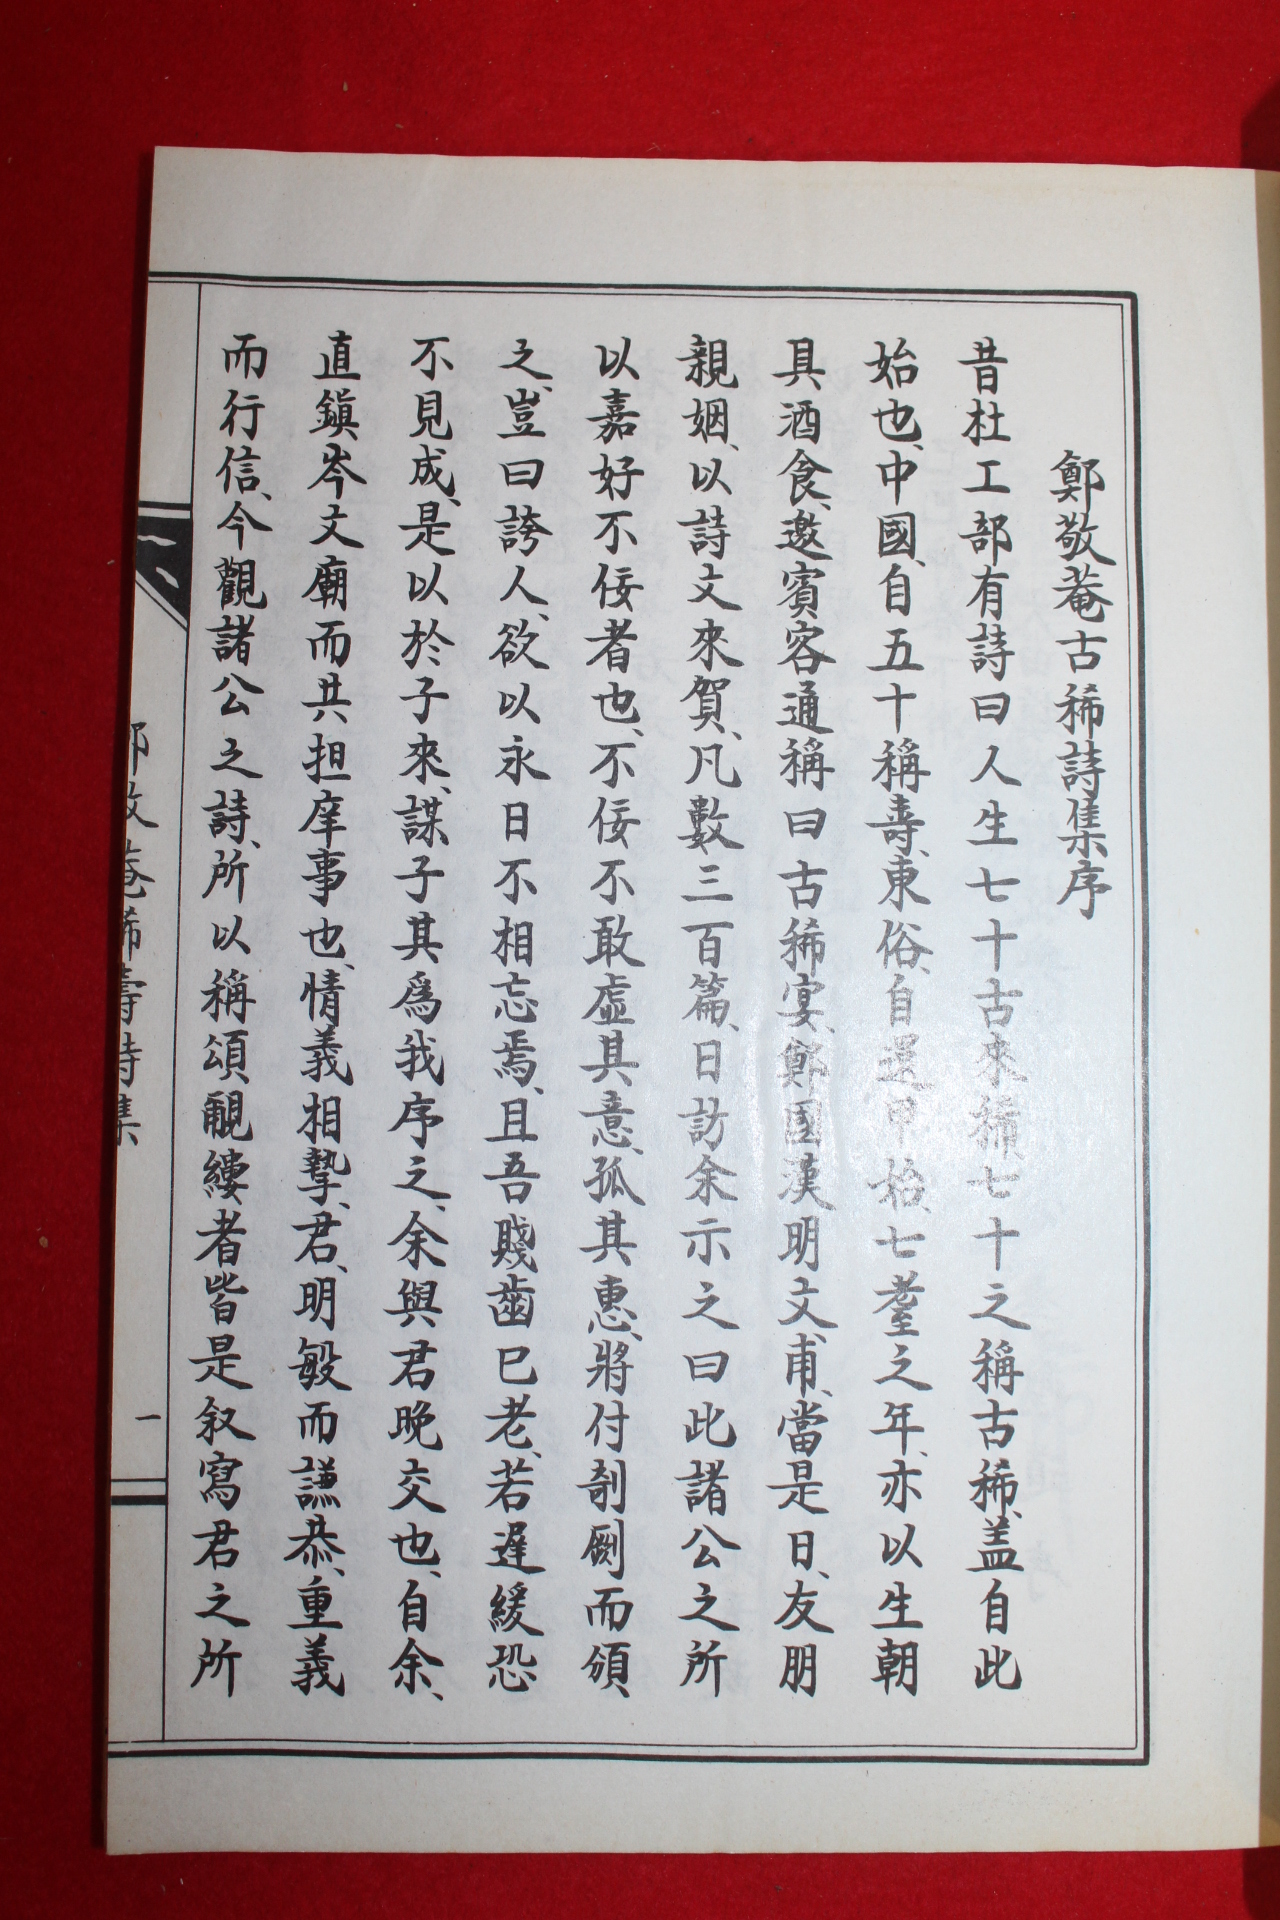 鄭敬菴古稀詩集序
昔杜工部有詩曰人生七十古來稀、七十之稱古稀、盖自此
始也、中國、自五十稱壽、東俗、自還甲始、七耋之年、亦以生朝
具酒食、邀賓客通稱曰古稀宴、鄭國漢明文、甫、當是日、友朋
親姻、以詩文來賀、凡數三百篇、日訪余示之曰此諸公之所
以嘉好不佞者也、不佞不敢虛其意、孤其惠、將付剞劂而頒
之、豈曰誇人、欲以永日不相忘焉、且吾賤齒已老、若遲緩恐
不見成、是以於子來、謀子其爲我序之、余與君晩交也、自余、
直鎭岑文廟而共担庠事也、情義相摯、君、明敏而謙恭、重義
而行信、今觀諸公之詩、所以稱頌覼縷者皆是叙寫君之所
鄭敬菴稀壽詩集
一